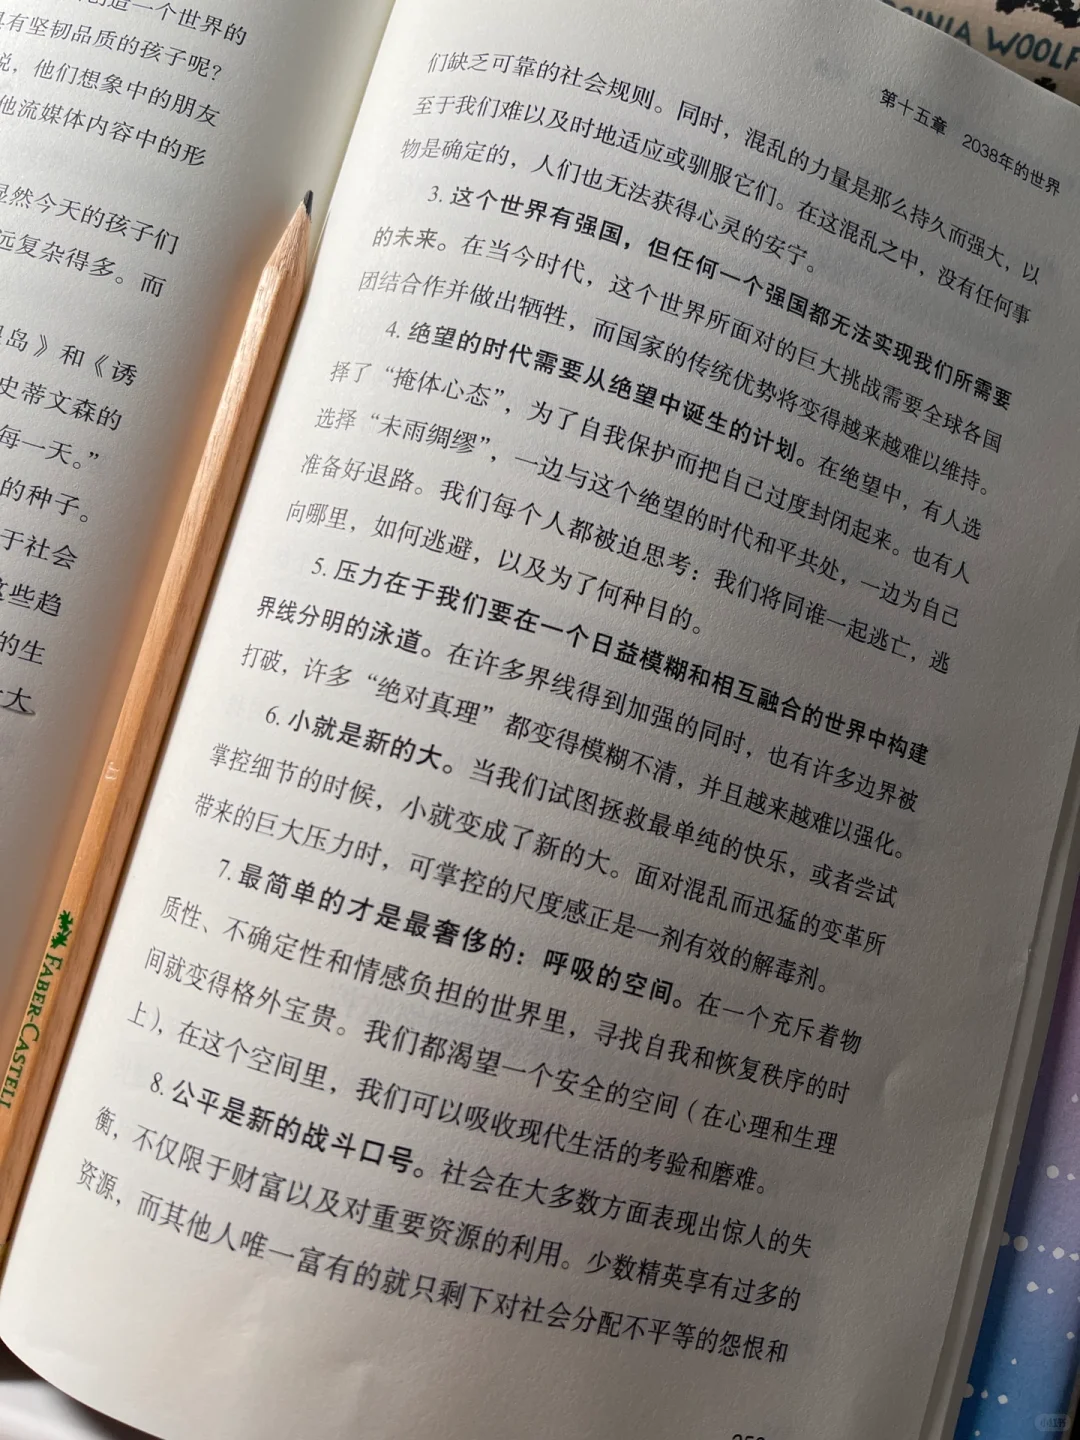 一个世界的
具有坚韧品质的孩子呢？
说，他们想象中的朋友
他流媒体内容中的形
显然今天的孩子们
远复杂得多。而
岛》和《诱
史蒂文森的
每一天。”
的种子。
于社会
这些趋
的生
大
FABER-CASTELL
VIRGINIA WOOLF
第十五章 2038年的世界
们缺乏可靠的社会规则。同时，混乱的力量是那么持久而强大，以
至于我们难以及时地适应或驯服它们。在这混乱之中，没有任何事
物是确定的，人们也无法获得心灵的安宁。
3. 这个世界有强国，但任何一个强国都无法实现我们所需要
的未来。在当今时代，这个世界所面对的巨大挑战需要全球各国
团结合作并做出牺牲，而国家的传统优势将变得越来越难以维持。
4. 绝望的时代需要从绝望中诞生的计划。在绝望中，有人选
择了“掩体心态”，为了自我保护而把自己过度封闭起来。也有人
选择“未雨绸缪”，一边与这个绝望的时代和平共处，一边为自己
准备好退路。我们每个人都被迫思考：我们将同谁一起逃亡，逃
向哪里，如何逃避，以及为了何种目的。
5. 压力在于我们要在一个日益模糊和相互融合的世界中构建
界线分明的泳道。在许多界线得到加强的同时，也有许多边界被
打破，许多“绝对真理”都变得模糊不清，并且越来越难以强化。
6. 小就是新的大。当我们试图拯救最单纯的快乐，或者尝试
掌控细节的时候，小就变成了新的大。面对混乱而迅猛的变革所
带来的巨大压力时，可掌控的尺度感正是一剂有效的解毒剂。
7. 最简单的才是最奢侈的：呼吸的空间。在一个充斥着物
质性、不确定性和情感负担的世界里，寻找自我和恢复秩序的时
间就变得格外宝贵。我们都渴望一个安全的空间（在心理和生理
上），在这个空间里，我们可以吸收现代生活的考验和磨难。
8. 公平是新的战斗口号。社会在大多数方面表现出惊人的失
衡，不仅限于财富以及对重要资源的利用。少数精英享有过多的
资源，而其他人唯一富有的就只剩下对社会分配不平等的怨恨和